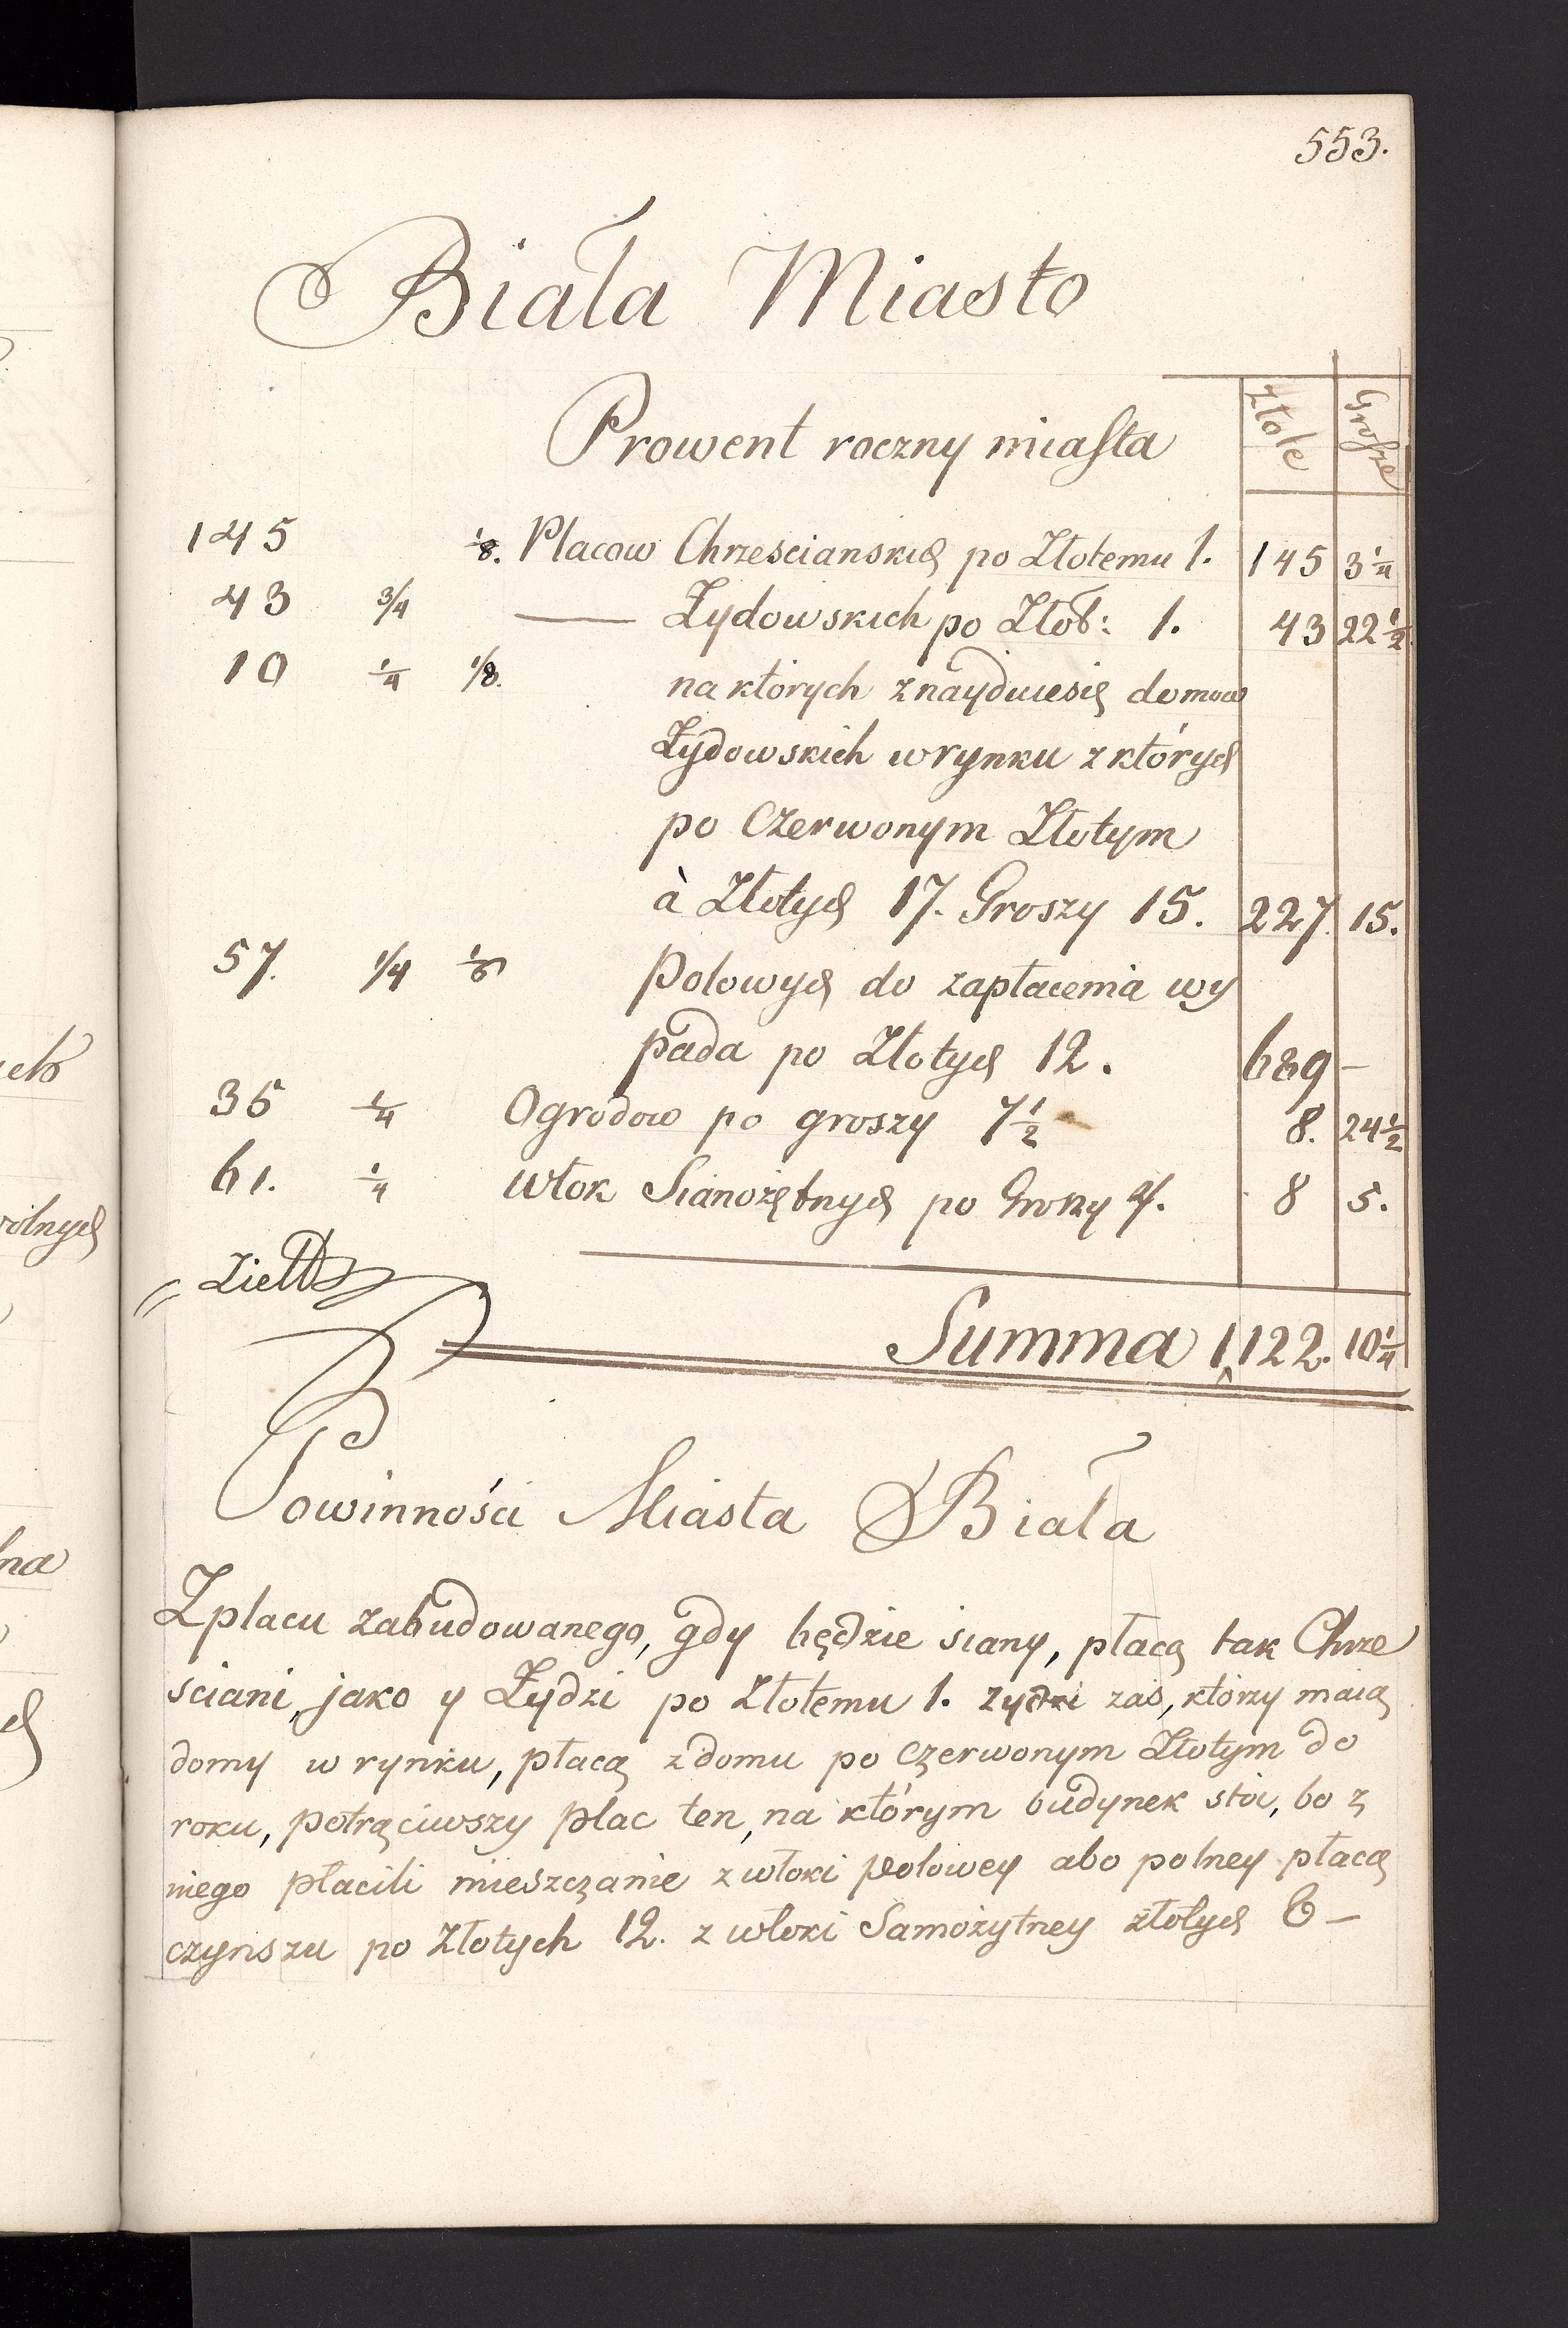 553.
Biała Miasto
Prowent roczny miasta Złote Grosze
145 1/8. Placow Chrzescianskich po Złotemu 1. 145 3 1/4
43 3/4 — Żydowskich po Złot: 1. 43 22 1/2
10 1/4 1/8. na ktorych znayduiesię domow
Żydowskich w rynku z których
po Czerwonym Złotym
à Złotych 17. Groszy 15. 227. 15.
57. 1/4 1/6 Polowych do zapłacenia wy
pada po Złotych 12. 689 —
35 1/4 Ogrodow po groszy 7 1/2 8. 24 1/2
61. 1/4 włok Sianożętnych po Groszy 4. 8 5.
Summa 1,122. 10 1/4
Powinności Miasta Biała
Z placu zabudowanego, gdy będzie siany, płacą tak Chrze
sciani, jako y Żydzi po Złotemu 1. zydzi zas, ktorzy maią
domy w rynku, płacą z domu po Czerwonym Złotym do
roku, potrąciwszy plac ten, na którym budynek stoi, bo z
niego płacili mieszczanie z włoki polowey abo polney płacą
czynszu po Złotych 12. z włoki Samożytney złotych 8 —